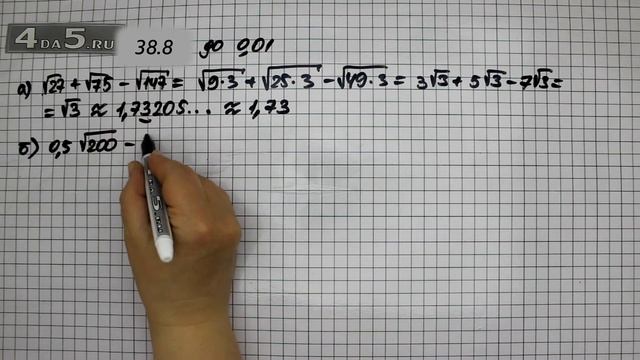 4DA5.RU 38.8 до 0,01
а) √27 + √75 − √147 = √9·3 + √25·3 − √49·3 = 3√3 + 5√3 − 7√3 =
= √3 ≈ 1,73205... ≈ 1,73
б) 0,5 √200 −